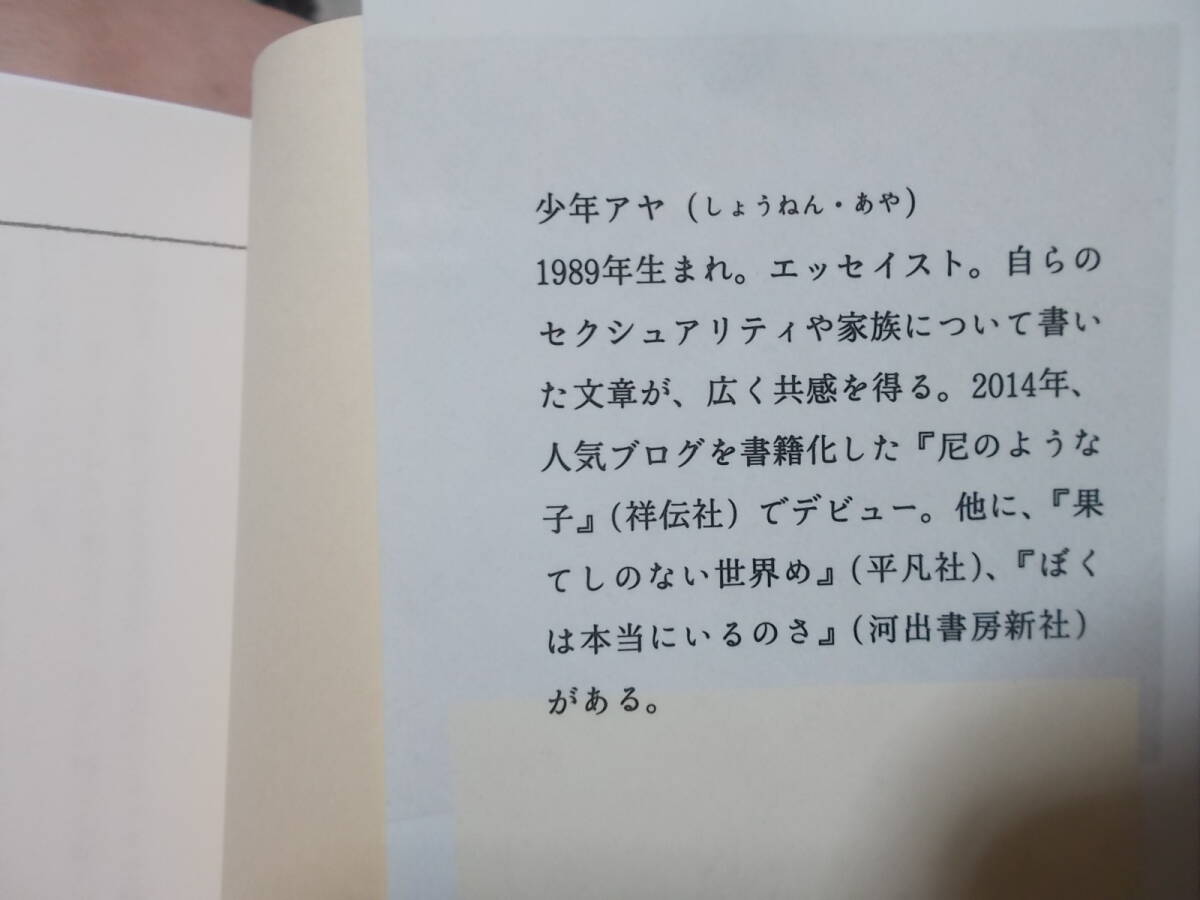 少年アヤ（しょうねん・あや）
1989年生まれ。エッセイスト。自らの
セクシュアリティや家族について書い
た文章が、広く共感を得る。2014年、
人気ブログを書籍化した『尼のような
子』（祥伝社）でデビュー。他に、『果
てしのない世界め』（平凡社）、『ぼく
は本当にいるのさ』（河出書房新社）
がある。